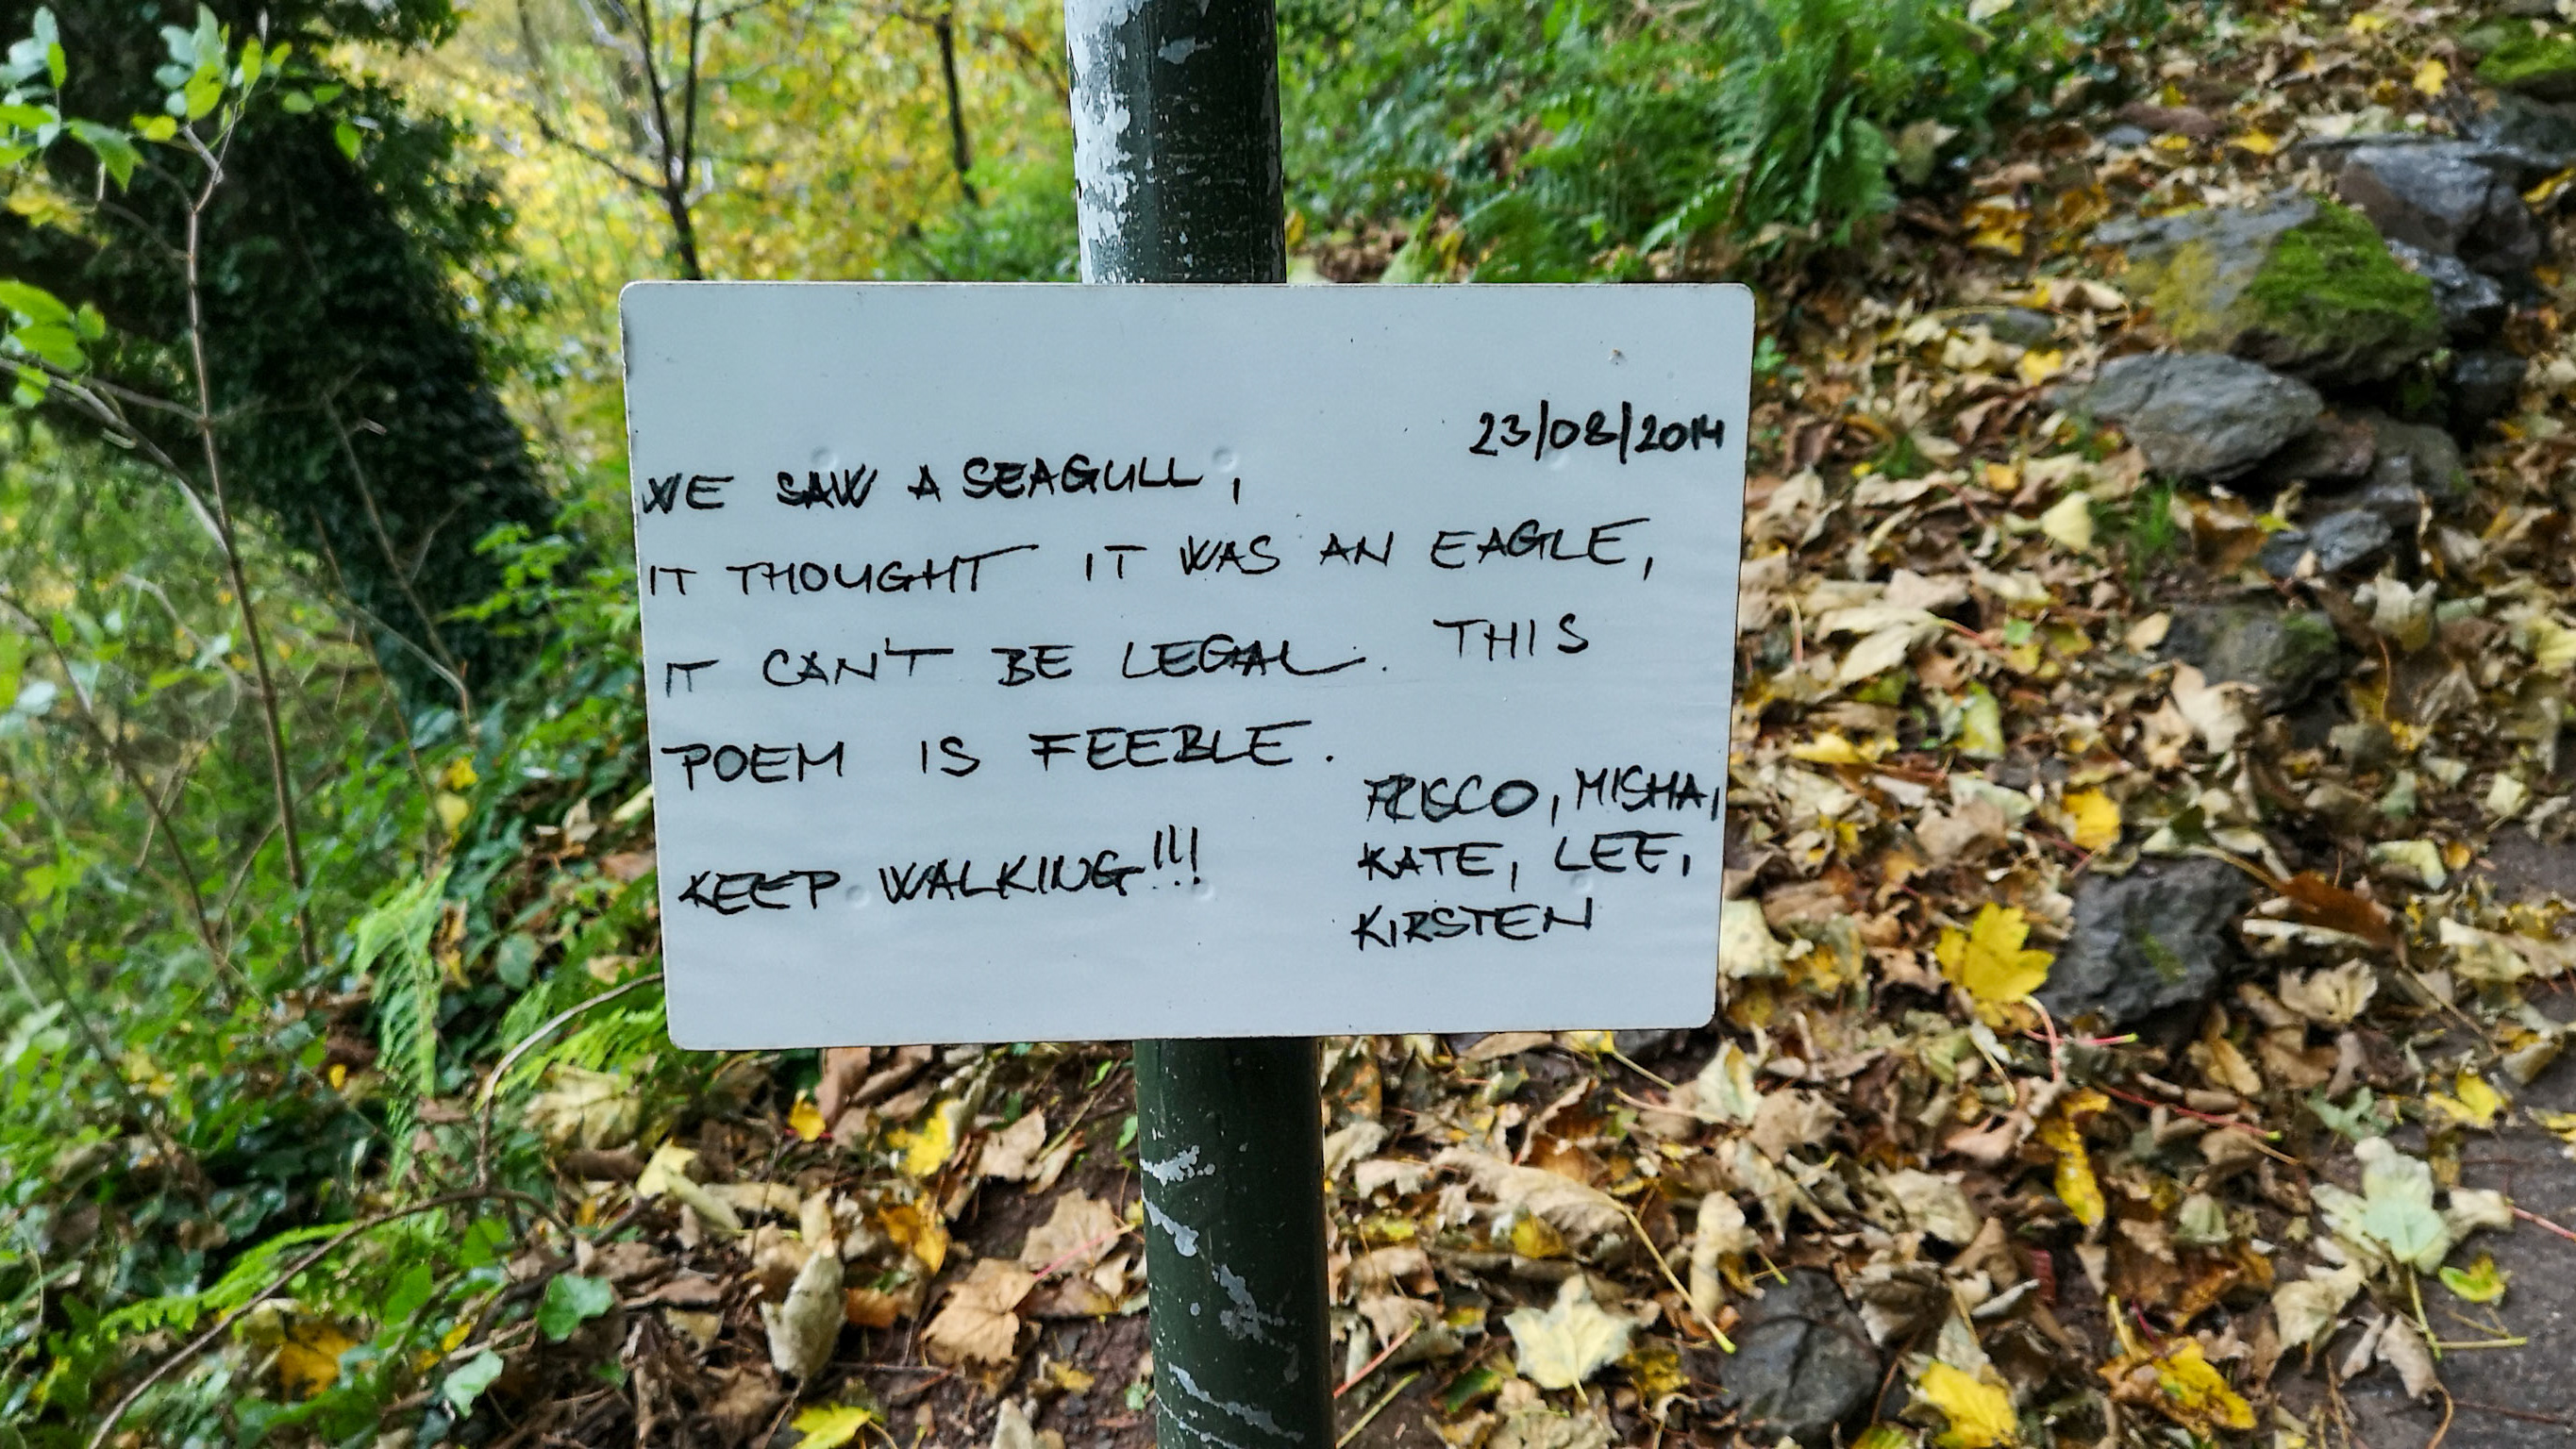 23/08/2014
WE SAW A SEAGULL,
IT THOUGHT IT WAS AN EAGLE,
IT CAN'T BE LEGAL. THIS
POEM IS FEEBLE.
KEEP WALKING!!!
FRISCO, MISHA,
KATE, LEE,
KIRSTEN